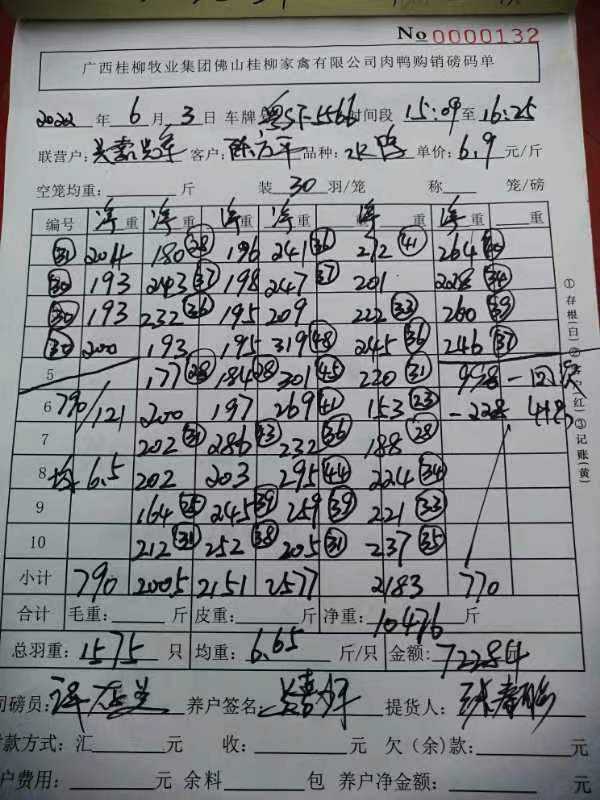 No 0000132
广西桂柳牧业集团佛山桂柳家禽有限公司肉鸭购销磅码单
2022 年 6 月 3 日 车牌 粤 5566 时间段 15:09 至 16:25
联营户: 客户: 陈方平 品种: 水鸭 单价: 6.9 元/斤
空笼均重: 斤 装 30 羽/笼 称 笼/磅
编号 净重 净重 净重 净重 净重 净重 重
31 204 180 28 196 241 36 212 41 264 40
30 193 243 37 198 247 37 201 228 34
30 193 232 36 195 209 222 33 260 39
30 200 193 195 319 48 245 36 246 37
5 177 28 184 28 301 45 220 31 998 一回
6 790/121 200 197 269 41 153 23 -228
7 202 31 286 43 232 36 188 28
8 均 6.5 202 203 295 44 224 34
9 164 25 245 39 259 39 221 33
10 212 31 252 38 205 31 237 35
小计 790 2005 2151 2577 2183 770
合计 毛重: 斤 皮重: 斤 净重: 10476 斤
总羽重: 1575 只 均重: 6.65 斤/只 金额: 72284
司磅员: 养户签名: 提货人:
付款方式: 汇 元 收: 元 欠(余)款: 元
户费用: 元 余料 包 养户净金额: 元
①存根(白)② (红)③记账(黄)